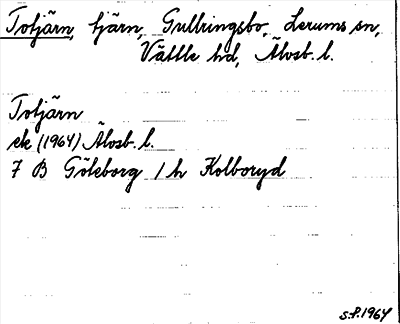 Totjärn, tjärn, Gullringsbo, Lerums sn,
Vättle hd, Älvsb. l.
Totjärn
ek (1964) Älvsb. l.
7 B Göteborg 1 h Kolboryd
S.P. 1964